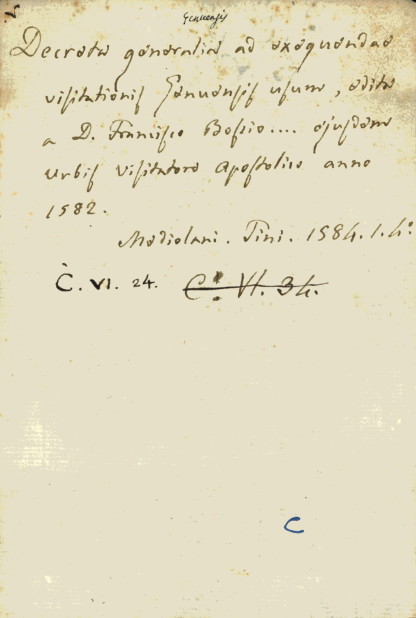 Genuensis
Decreta generalia ad exequendae
visitationis Genuensis usum, edita
a D. Francisco Bossio.... ejusdem
urbis visitatore apostolico anno
1582.
Mediolani. Tini. 1584. 1. 4º
C. VI. 24. C. VI. 34.
C